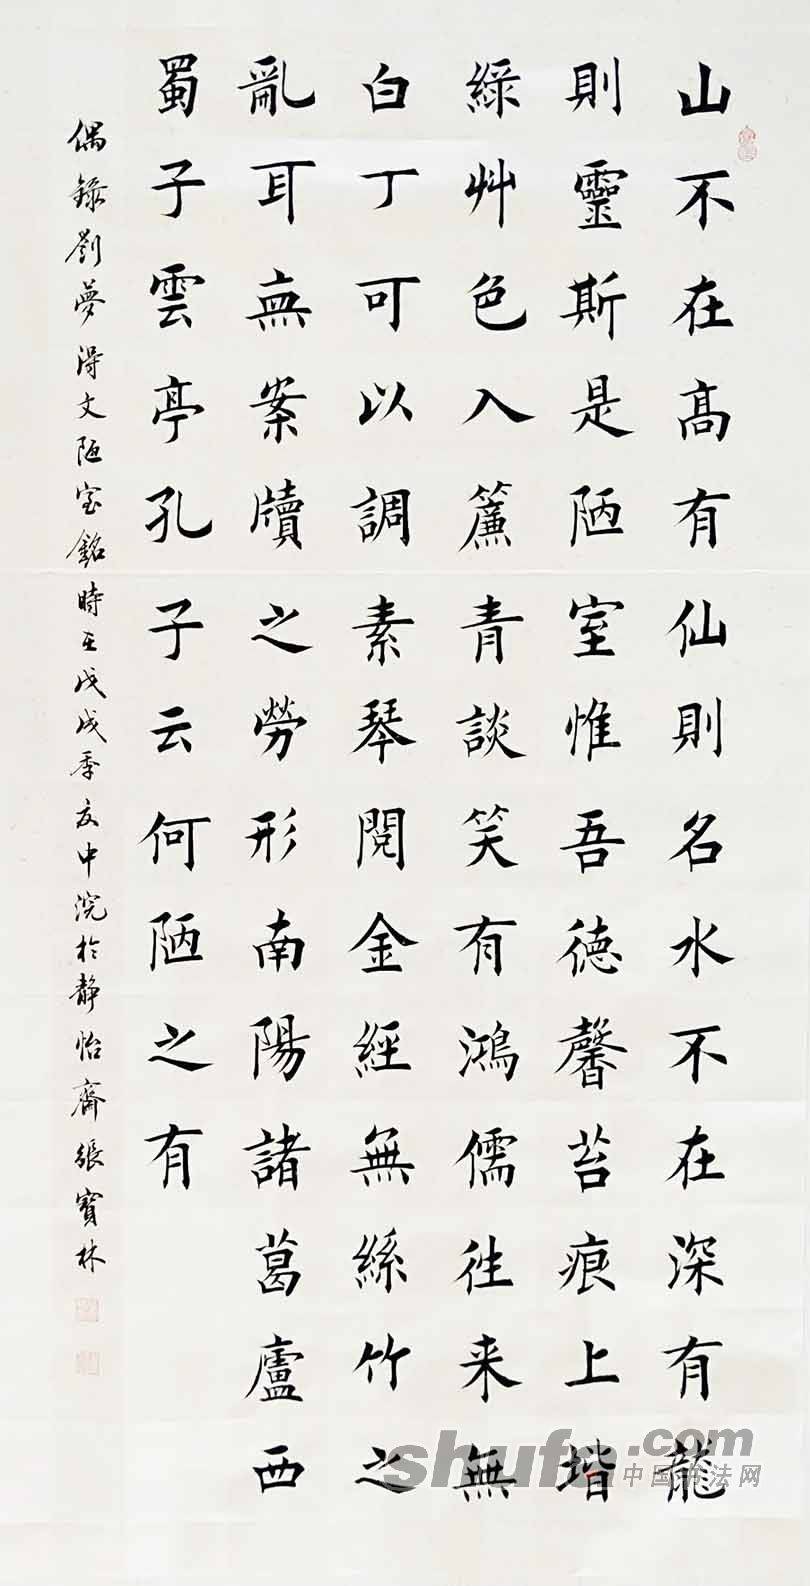 山不在高有仙則名水不在深有龍
則靈斯是陋室惟吾德馨苔痕上堦
綠艸色入簾青談笑有鴻儒往来無
白丁可以調素琴閱金經無絲竹之
亂耳無案牘之勞形南陽諸葛廬西
蜀子雲亭孔子云何陋之有
偶錄劉夢得文陋室銘時在戊戌季夏中浣於静怡齋張寶林
shufa.com
中国书法网